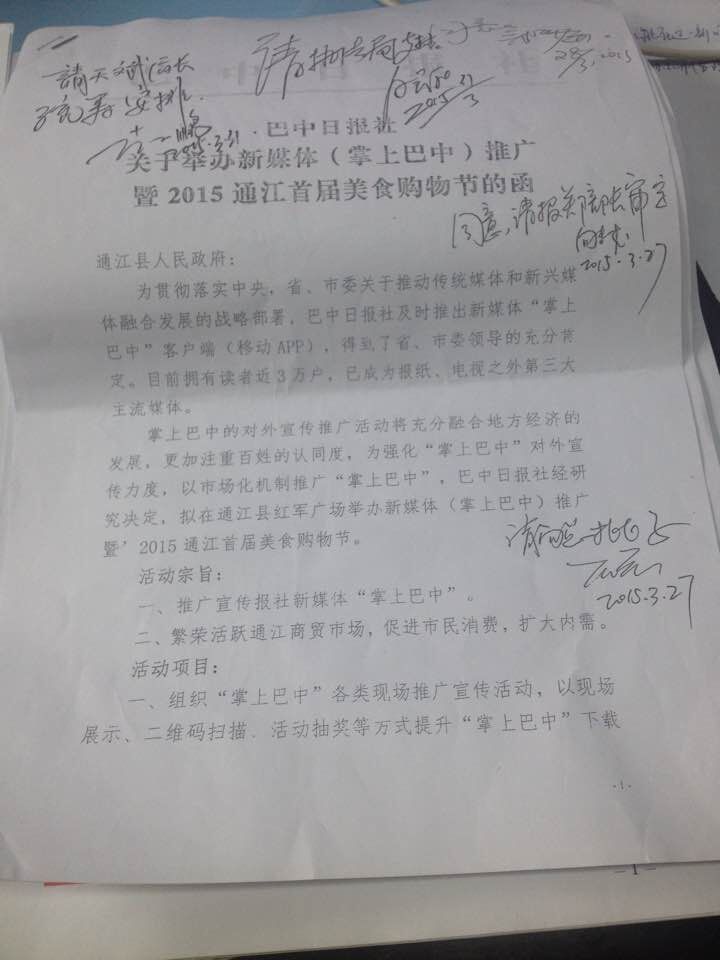 請天斌局长
安排.
2015.3.31
请执法局
2015.3/31
28/3.2015
巴中日报社
关于举办新媒体（掌上巴中）推广
暨 2015 通江首届美食购物节的函
同意，请报郑部长审定
2015.3.27
通江县人民政府：
为贯彻落实中央，省、市委关于推动传统媒体和新兴媒
体融合发展的战略部署，巴中日报社及时推出新媒体“掌上
巴中”客户端（移动APP），得到了省、市委领导的充分肯
定。目前拥有读者近3万户，已成为报纸、电视之外第三大
主流媒体。
掌上巴中的对外宣传推广活动将充分融合地方经济的
发展，更加注重百姓的认同度，为强化“掌上巴中”对外宣
传力度，以市场化机制推广“掌上巴中”，巴中日报社经研
究决定，拟在通江县红军广场举办新媒体（掌上巴中）推广
暨’2015 通江首届美食购物节。
2015.3.27
活动宗旨：
一、推广宣传报社新媒体“掌上巴中”。
二、繁荣活跃通江商贸市场，促进市民消费，扩大内需。
活动项目：
一、组织“掌上巴中”各类现场推广宣传活动，以现场
展示、二维码扫描．活动抽奖等方式提升“掌上巴中”下载
·1·
－1－